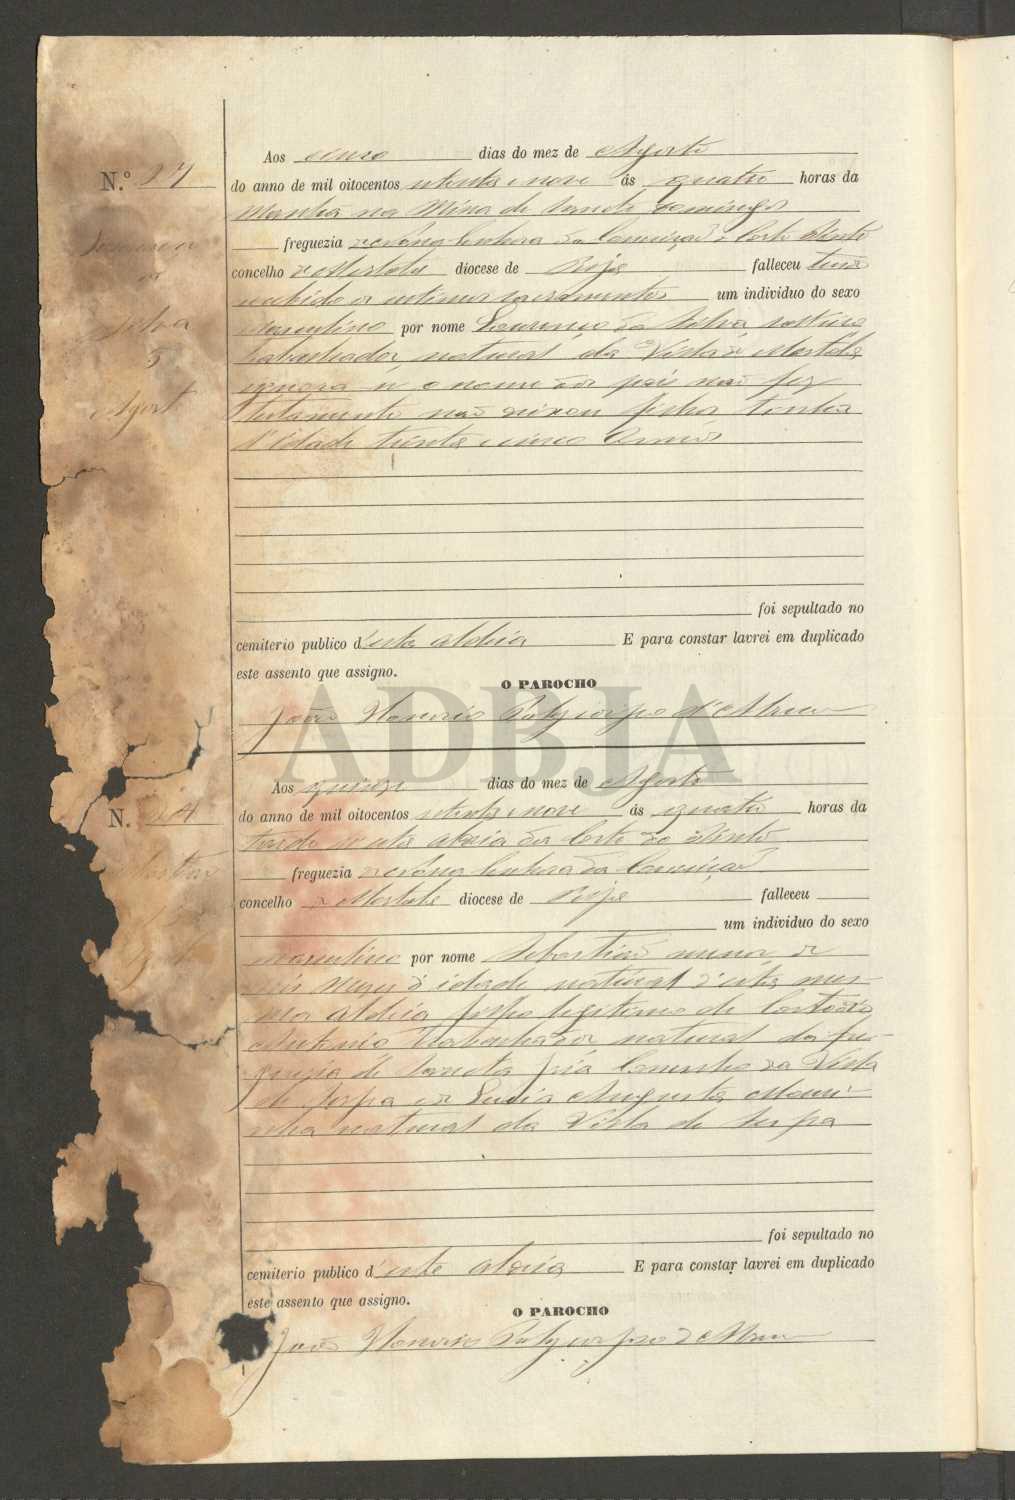 Aos cinco dias do mez de Agosto
N.º 27
do anno de mil oitocentos oitenta e nove ás quatro horas da
manhã na Mina de São Domingos
freguezia de Nossa Senhora da Conceição
concelho de Mertola diocese de Beja falleceu tendo
recebido os ultimos sacramentos um individuo do sexo
masculino por nome Lourenço da Silva, solteiro
trabalhador, natural da Villa de Mertola
ignora-se o nome dos pais não fez
testamento não deixou filhos tinha
d'idade trinta e cinco annos
Lourenço
da
Silva
5
Agosto
foi sepultado no
cemiterio publico d'esta aldeia E para constar lavrei em duplicado
este assento que assigno.
O PAROCHO
João Honorio Polycarpo d'Abreu
ADBJA
Aos quinze dias do mez de Agosto
N.º
do anno de mil oitocentos oitenta e nove ás quatro horas da
tarde n'esta aldeia da Corte do Pinto
freguezia de Nossa Senhora da Conceição
concelho de Mertola diocese de Beja falleceu
um individuo do sexo
masculino por nome Sebastião menor de
seis mezes d'idade natural d'esta mes-
ma aldeia filho legitimo de
Antonio trabalhador natural da fre-
guezia de Sancta Iria Concelho da Villa
de Serpa e de Luzia Augusta
natural da Villa de Serpa
Sebastião
foi sepultado no
cemiterio publico d'esta aldeia E para constar lavrei em duplicado
este assento que assigno.
O PAROCHO
João Honorio Polycarpo d'Abreu